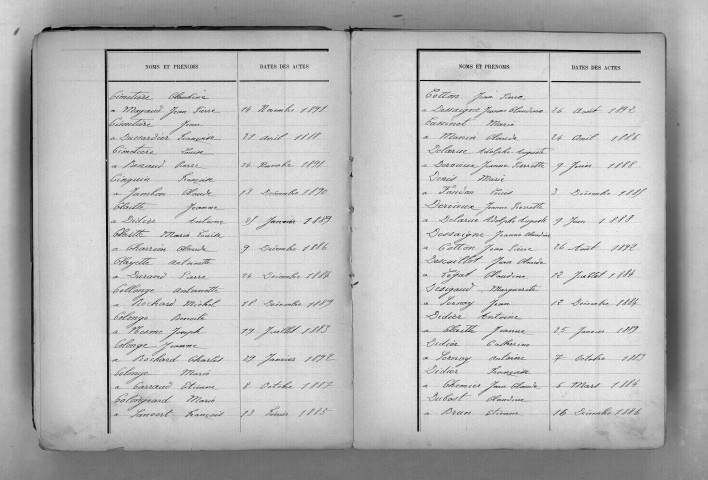 NOMS ET PRÉNOMS DATES DES ACTES
Cimetière Claudine
à Mayaud Jean Pierre 14 Novembre 1891
Cimetière Jean
à Dussardier Françoise 28 avril 1888
Cimetière Louise
à Pierre 14 Novembre 1891
Cinquin Françoise
à Jambon Claude 13 Décembre 1890
Claitte Jeanne
à Didier Antoine 25 Janvier 1889
Claitte Marie Louise
à Charrin Claude 9 Décembre 1886
Clayette Antoinette
à Durand Pierre 24 Décembre 1884
Collonge Antoinette
à Rochard Michel 28 Décembre 1889
Colonge Benoite
à Nesme Joseph 29 Juillet 1883
Colonge Jeanne
à Bochard Charles 29 Janvier 1892
Colonge Marie
à Carraud Etienne 8 Octobre 1887
Marie
à François 13 Février 1885
NOMS ET PRÉNOMS DATES DES ACTES
Cotton Jean Pierre
à Dessaigne Jeanne Claudine 26 Août 1892
Marie
à Claude 24 Avril 1886
Delarue Adolphe Auguste
à Derrieux Jeanne Pierrette 9 Juin 1888
Denis Marie
à Louis 3 Décembre
Derrieux Jeanne Pierrette
à Delarue Adolphe Auguste 9 Juin 1888
Dessaigne Jeanne Claudine
à Cotton Jean Pierre 26 Août 1892
Jean Claude
à Claudine 12 Juillet 1884
Marguerite
à Ternay Jean 12 Décembre 1884
Didier Antoine
à Claitte Jeanne 25 Janvier 1889
Didier Catherine
à Ternay Antoine 7 Octobre 1883
Didier Françoise
à Jean Claude 6 Mars 1886
Dubost Claudine
à Brun Etienne 16 Décembre 1886